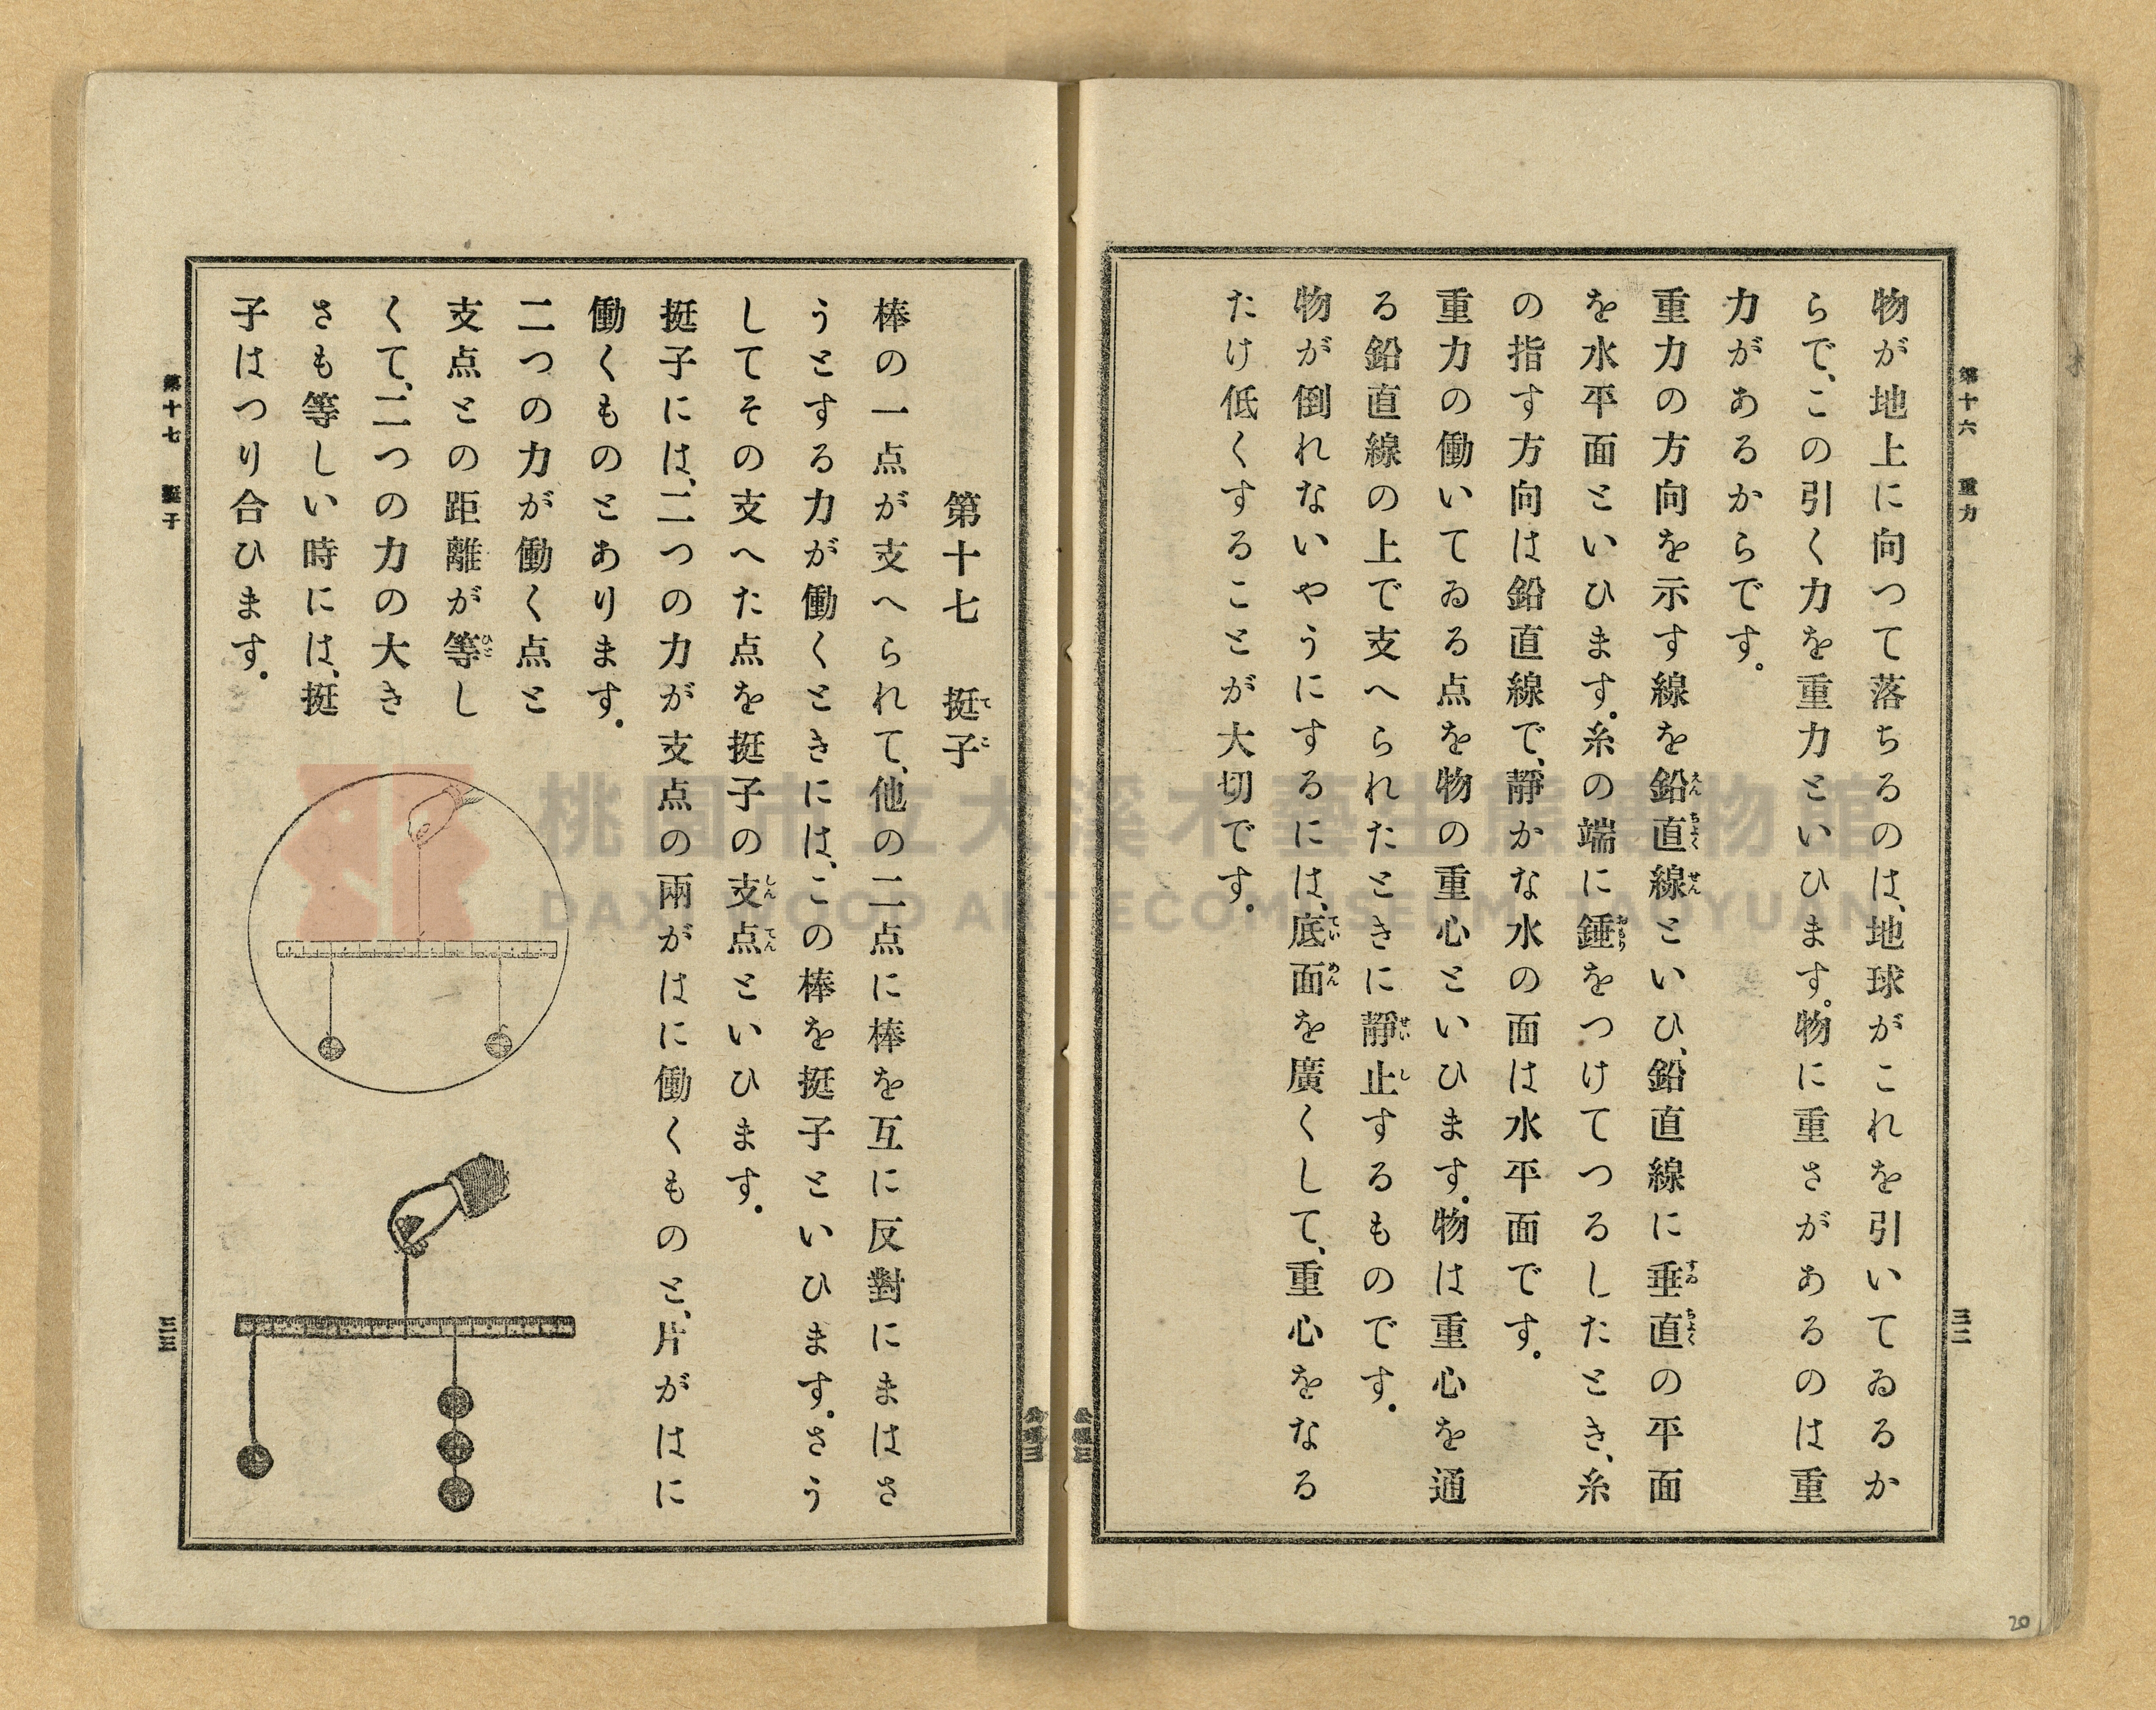 第十六 重力
三二
物が地上に向つて落ちるのは、地球がこれを引いてゐるか
らで、この引く力を重力といひます。物に重さがあるのは重
力があるからです。
重力の方向を示す線を鉛直線といひ、鉛直線に垂直の平面
を水平面といひます。糸の端に錘をつけてつるしたとき、糸
の指す方向は鉛直線で、靜かな水の面は水平面です。
重力の働いてゐる点を物の重心といひます。物は重心を通
る鉛直線の上で支へられたときに靜止するものです。
物が倒れないやうにするには、底面を廣くして、重心をなる
たけ低くすることが大切です。
第十七 挺子
棒の一点が支へられて、他の二点に棒を互に反對にまはさ
うとする力が働くときには、この棒を挺子といひます。さう
してその支へた点を挺子の支点といひます。
挺子には、二つの力が支点の兩がはに働くものと、片がはに
働くものとあります。
二つの力が働く点と
支点との距離が等し
くて、二つの力の大き
さも等しい時には、挺
子はつり合ひます。
第十七 挺子
三三
桃園市立大溪木藝生態博物館
DAXI WOOD ART ECOMUSEUM, TAOYUAN
20